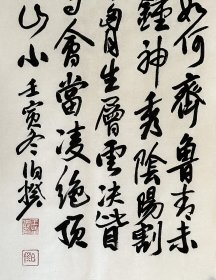 如何齊魯青未
鍾神秀陰陽割
胷生層雲決眥
鳥會當凌絕頂
山小 壬寅冬伯